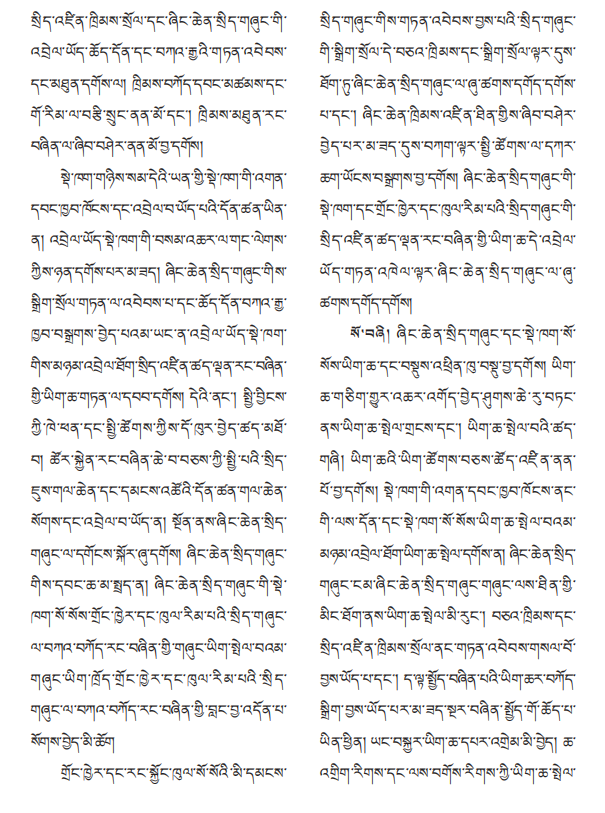 སྲིད་འཛིན་ཁྲིམས་སྲོལ་དང་ཞིང་ཆེན་སྲིད་གཞུང་གི་
འབྲེལ་ཡོད་ཆོད་དོན་དང་བཀའ་རྒྱའི་གཏན་འབེབས་
དང་མཐུན་དགོས་ལ། ཁྲིམས་བཀོད་དབང་མཚམས་དང་
གོ་རིམ་ལ་བརྩི་སྲུང་ནན་མོ་དང་། ཁྲིམས་མཐུན་རང་
བཞིན་ལ་ཞིབ་བཤེར་ནན་མོ་བྱ་དགོས།
སྡེ་ཁག་གཉིས་སམ་དེའི་ཡན་གྱི་སྡེ་ཁག་གི་འགན་
དབང་ཁྱབ་ཁོངས་དང་འབྲེལ་བ་ཡོད་པའི་དོན་ཚན་ཡིན་
ན། འབྲེལ་ཡོད་སྡེ་ཁག་གི་བསམ་འཆར་ལ་གང་ལེགས་
ཀྱིས་ཉན་དགོས་པར་མ་ཟད། ཞིང་ཆེན་སྲིད་གཞུང་གིས་
སྒྲིག་སྲོལ་གཏན་ལ་འབེབས་པ་དང་ཆོད་དོན་བཀའ་རྒྱ་
ཁྱབ་བསྒྲགས་བྱེད་པའམ་ཡང་ན་འབྲེལ་ཡོད་སྡེ་ཁག་
གིས་མཉམ་འབྲེལ་ཐོག་སྲིད་འཛིན་ཚད་ལྡན་རང་བཞིན་
གྱི་ཡིག་ཆ་གཏན་ལ་དབབ་དགོས། དེའི་ནང་། སྤྱི་བྱིངས་
ཀྱི་ཁེ་ཕན་དང་སྤྱི་ཚོགས་ཀྱིས་དོ་ཁུར་བྱེད་ཚད་མཐོ་
བ། ཚོར་སྐྱེན་རང་བཞིན་ཆེ་བ་བཅས་ཀྱི་སྤྱི་པའི་སྲིད་
ཇུས་གལ་ཆེན་དང་དམངས་འཚོའི་དོན་ཚན་གལ་ཆེན་
སོགས་དང་འབྲེལ་བ་ཡོད་ན། སྔོན་ནས་ཞིང་ཆེན་སྲིད་
གཞུང་ལ་དགོངས་སྐོར་ཞུ་དགོས། ཞིང་ཆེན་སྲིད་གཞུང་
གིས་དབང་ཆ་མ་སྤྲད་ན། ཞིང་ཆེན་སྲིད་གཞུང་གི་སྡེ་
ཁག་སོ་སོས་གྲོང་ཁྱེར་དང་ཁུལ་རིམ་པའི་སྲིད་གཞུང་
ལ་བཀའ་བཀོད་རང་བཞིན་གྱི་གཞུང་ཡིག་སྤེལ་བའམ་
གཞུང་ཡིག་ཁྲོད་གྲོང་ཁྱེར་དང་ཁུལ་རིམ་པའི་སྲིད་
གཞུང་ལ་བཀའ་བཀོད་རང་བཞིན་གྱི་བླང་བྱ་འདོན་པ་
སོགས་བྱེད་མི་ཆོག
གྲོང་ཁྱེར་དང་རང་སྐྱོང་ཁུལ་སོ་སོའི་མི་དམངས་
སྲིད་གཞུང་གིས་གཏན་འབེབས་བྱས་པའི་སྲིད་གཞུང་
གི་སྒྲིག་སྲོལ་དེ་བཅའ་ཁྲིམས་དང་སྒྲིག་སྲོལ་ལྟར་དུས་
ཐོག་ཏུ་ཞིང་ཆེན་སྲིད་གཞུང་ལ་ཞུ་ཚགས་དགོད་དགོས་
པ་དང་། ཞིང་ཆེན་ཁྲིམས་འཛིན་ཐིན་གྱིས་ཞིབ་བཤེར་
བྱེད་པར་མ་ཟད་དུས་བཀག་ལྟར་སྤྱི་ཚོགས་ལ་དཀར་
ཆག་ཡོངས་བསྒྲགས་བྱ་དགོས། ཞིང་ཆེན་སྲིད་གཞུང་གི་
སྡེ་ཁག་དང་གྲོང་ཁྱེར་དང་ཁུལ་རིམ་པའི་སྲིད་གཞུང་གི་
སྲིད་འཛིན་ཚད་ལྡན་རང་བཞིན་གྱི་ཡིག་ཆ་དེ་འབྲེལ་
ཡོད་གཏན་འཁེལ་ལྟར་ཞིང་ཆེན་སྲིད་གཞུང་ལ་ཞུ་
ཚགས་དགོད་དགོས།
སོ་བཞི། ཞིང་ཆེན་སྲིད་གཞུང་དང་སྡེ་ཁག་སོ་
སོས་ཡིག་ཆ་དང་བསྡུས་འཕྲིན་ཁུ་བསྡུ་བྱ་དགོས། ཡིག་
ཆ་གཅིག་གྱུར་འཆར་འགོད་བྱེད་ཤུགས་ཆེ་རུ་བཏང་
ནས་ཡིག་ཆ་སྤེལ་གྲངས་དང་། ཡིག་ཆ་སྤེལ་བའི་ཚད་
གཞི། ཡིག་ཆའི་ཡིག་ཚོགས་བཅས་ཚོད་འཛིན་ནན་
པོ་བྱ་དགོས། སྡེ་ཁག་གི་འགན་དབང་ཁྱབ་ཁོངས་ནང་
གི་ལས་དོན་དང་སྡེ་ཁག་སོ་སོས་ཡིག་ཆ་སྤེལ་བའམ་
མཉམ་འབྲེལ་ཐོག་ཡིག་ཆ་སྤེལ་དགོས་ན། ཞིང་ཆེན་སྲིད་
གཞུང་ངམ་ཞིང་ཆེན་སྲིད་གཞུང་གཞུང་ལས་ཐིན་གྱི་
མིང་ཐོག་ནས་ཡིག་ཆ་སྤེལ་མི་རུང་། བཅའ་ཁྲིམས་དང་
སྲིད་འཛིན་ཁྲིམས་སྲོལ་ནང་གཏན་འབེབས་གསལ་པོ་
བྱས་ཡོད་པ་དང་། ད་ལྟ་སྤྱོད་བཞིན་པའི་ཡིག་ཆར་བཀོད་
སྒྲིག་བྱས་ཡོད་པར་མ་ཟད་སྔར་བཞིན་སྤྱོད་གོ་ཆོད་པ་
ཡིན་ཕྱིན། ཡང་བསྐྱར་ཡིག་ཆ་དཔར་འགྲེམ་མི་བྱེད། ཆ་
འགྲིག་རིགས་དང་ལས་བགོས་རིགས་ཀྱི་ཡིག་ཆ་སྤེལ་